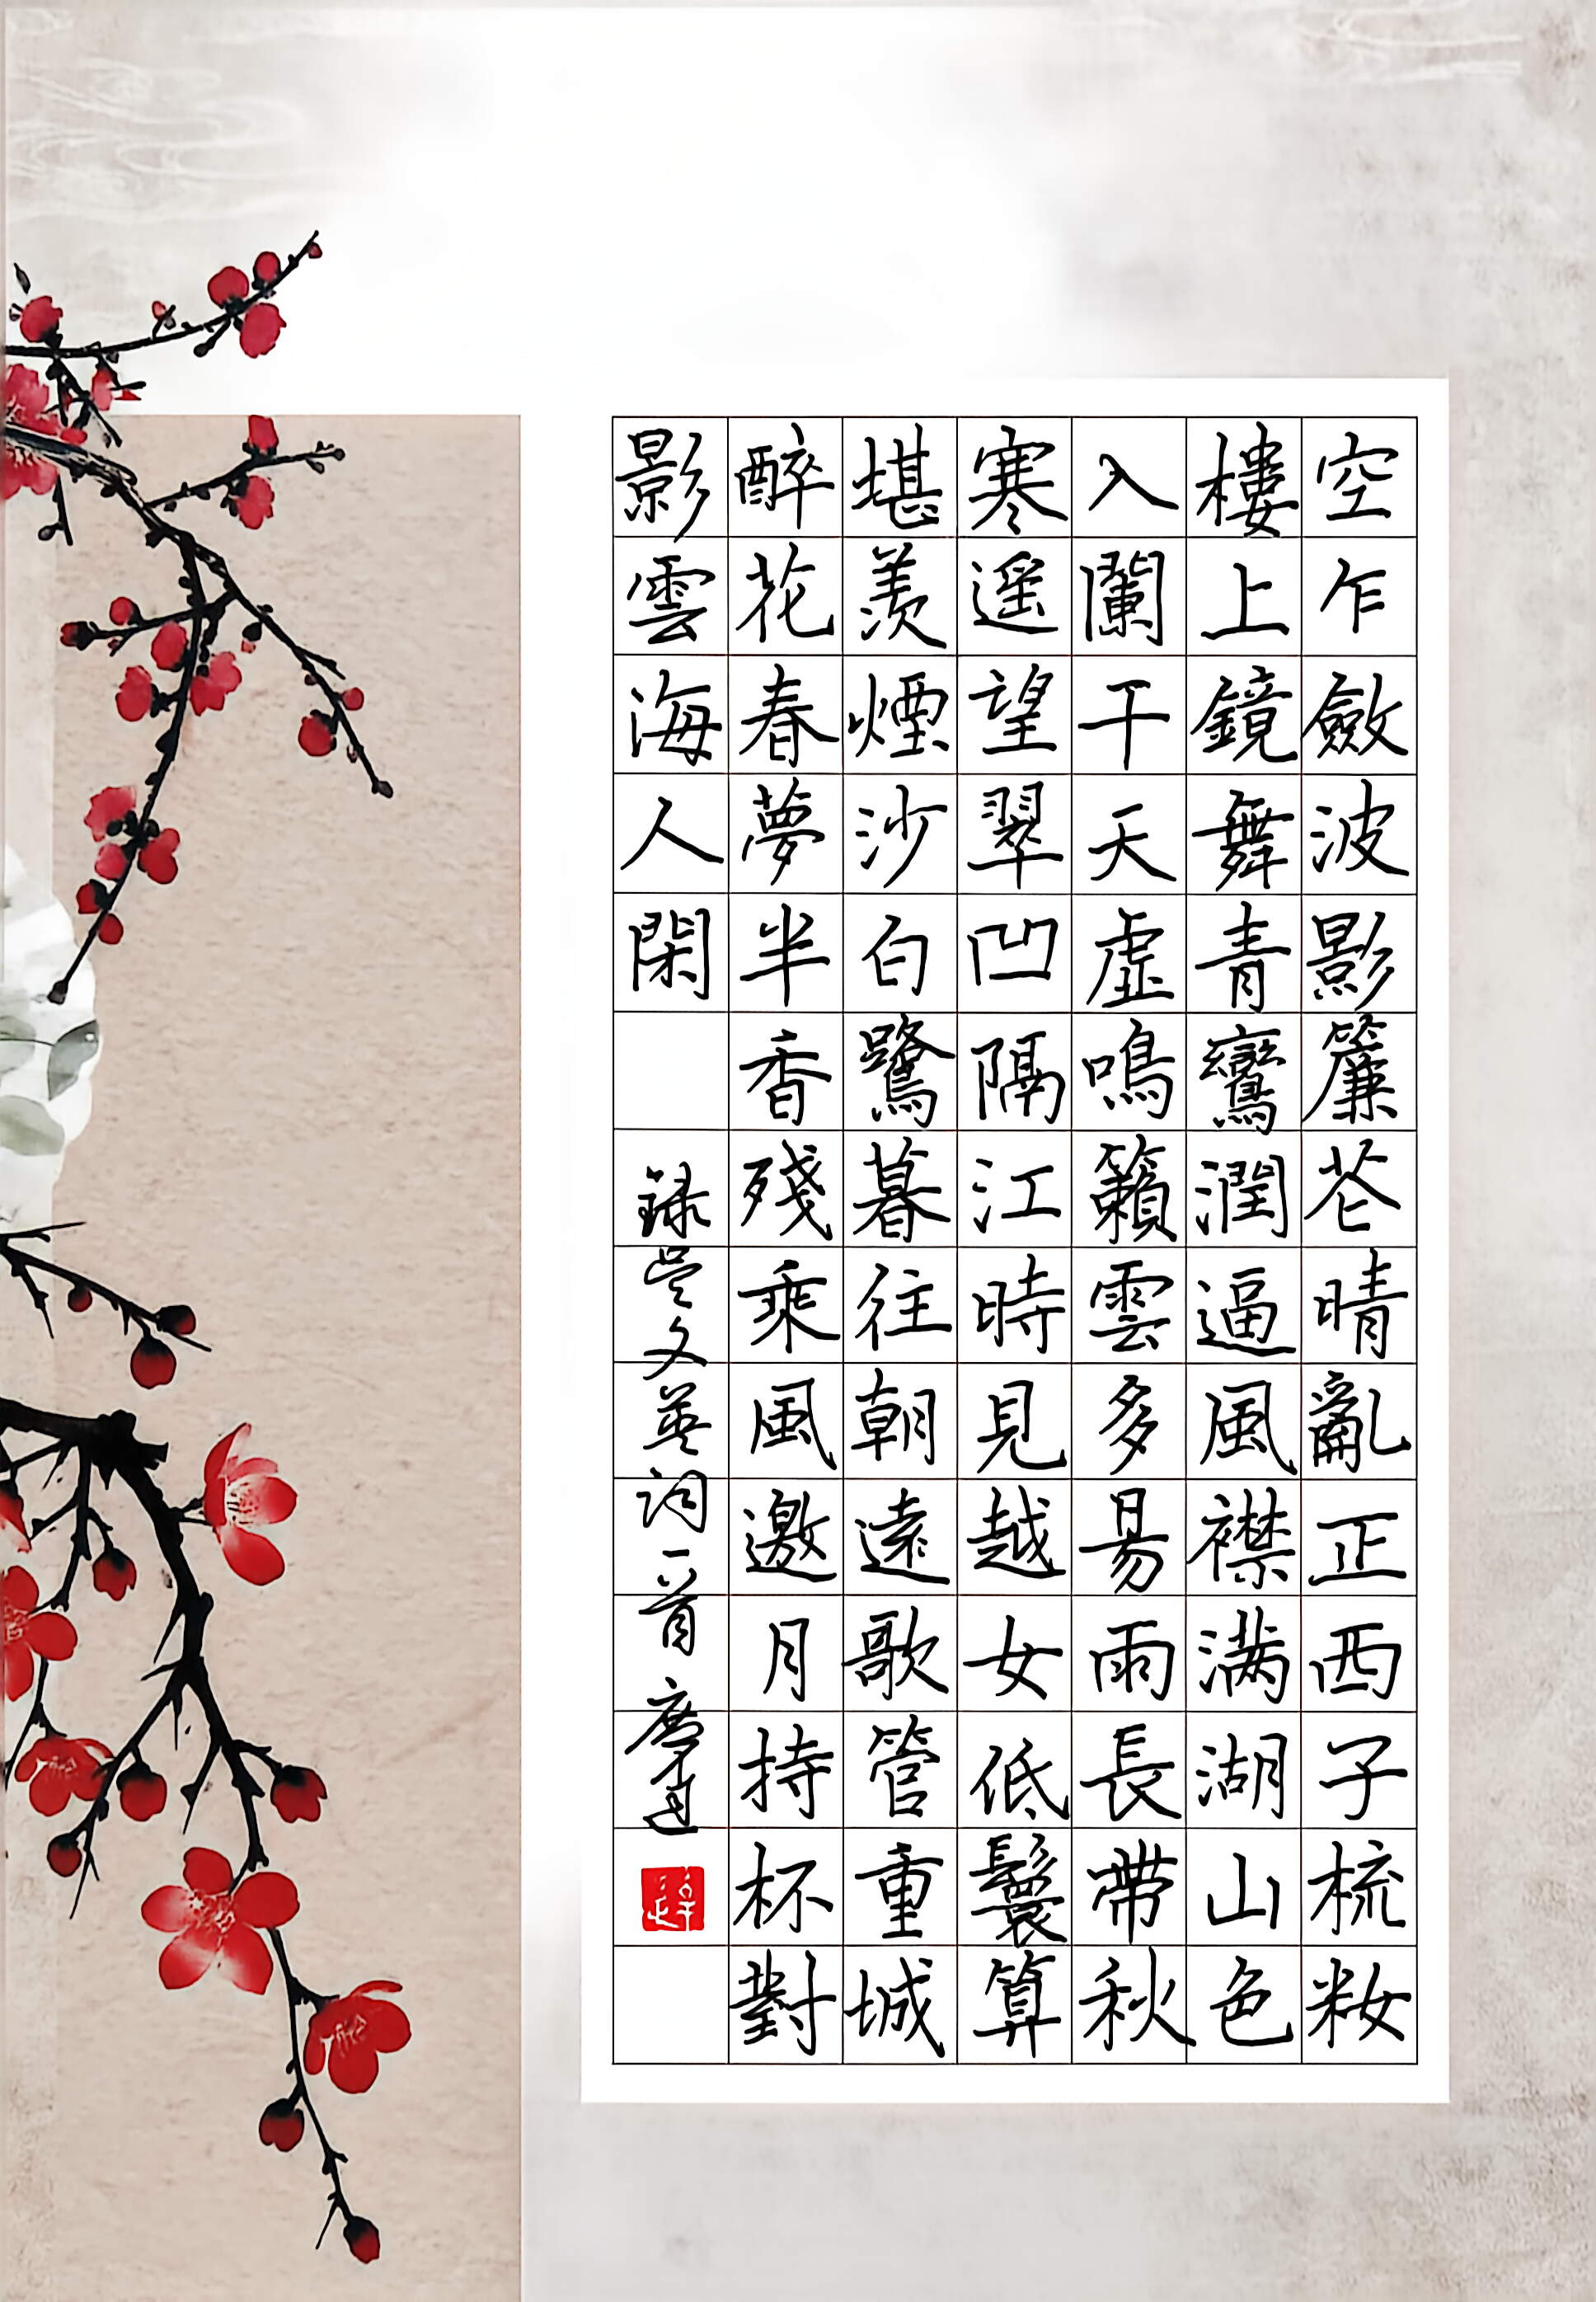 空乍斂波影簾芲晴亂正西子梳籹
樓上鏡舞青鸞潤逼風襟满湖山色
入闌干天虛鳴籟雲多易雨長帶秋
寒遥望翠凹隔江時見越女低鬟算
堪羨煙沙白鷺暮往朝遠歌管重城
醉花春夢半香殘乘風邀月持杯對
影雲海人閑 録吴文英词一首